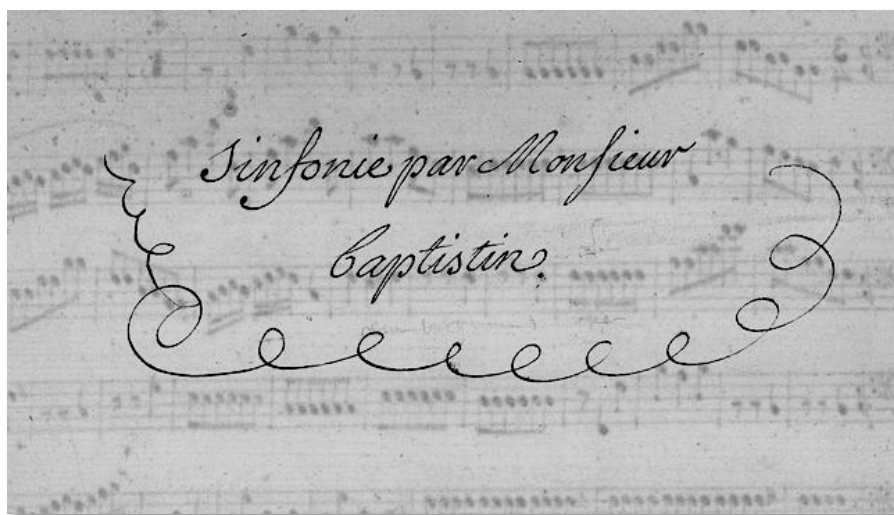 Sinfonie par Monsieur
Baptistin.